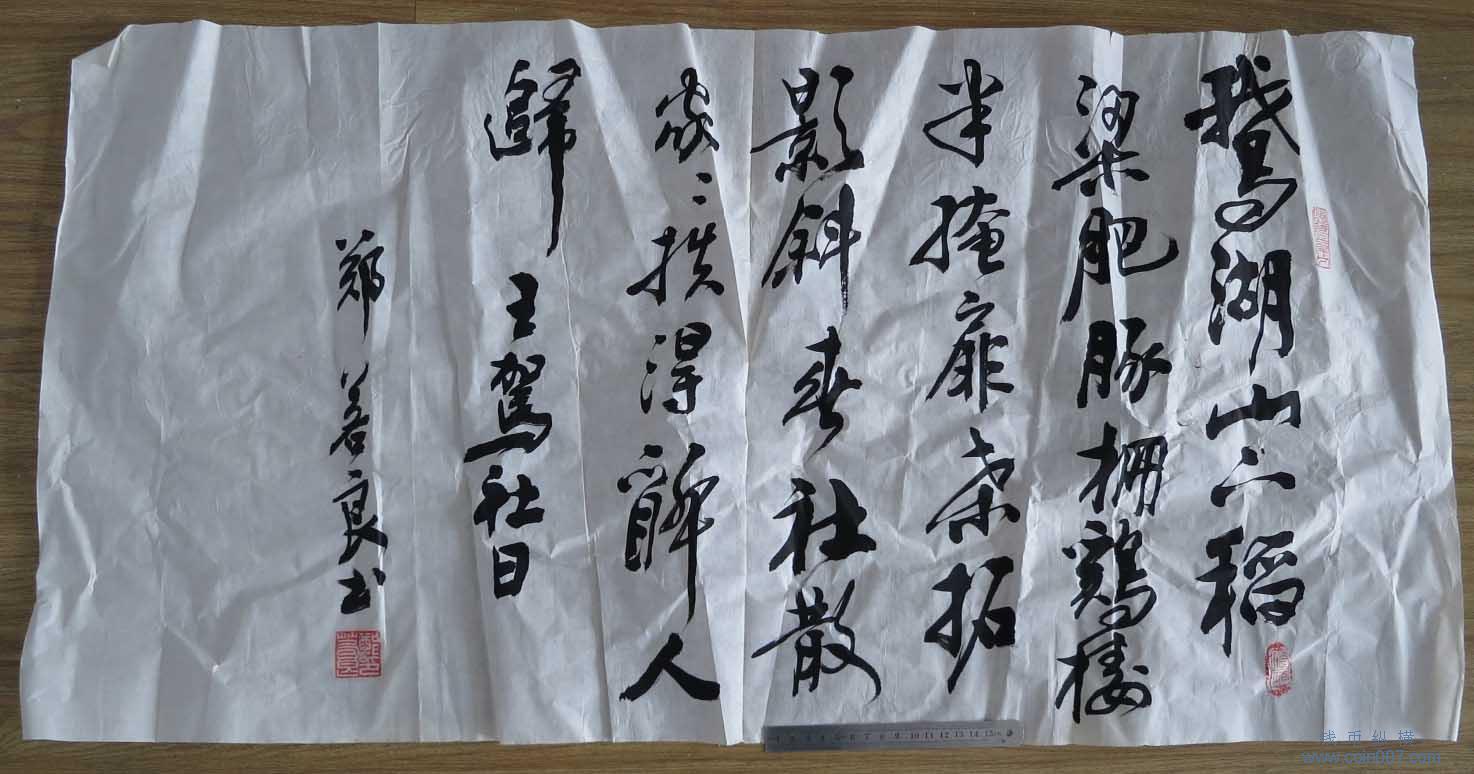 鵝湖山下稻
梁肥豚柵鷄棲
半掩扉桑拓
影斜春社散
家々扶得醉人
歸 王駕社日
鄭若良书
钱币纵横
www.coin007.com